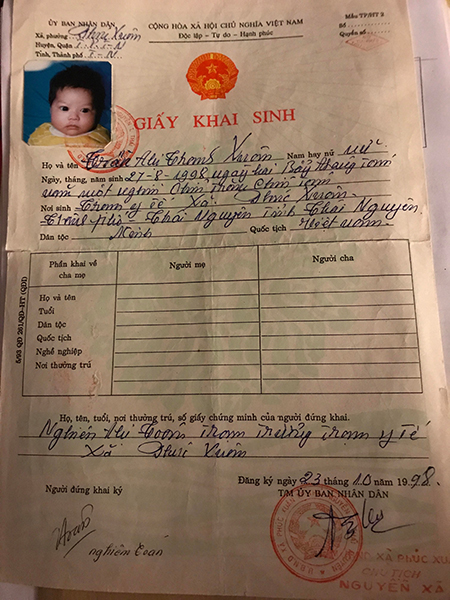 ỦY BAN NHÂN DÂN
Xã, phường Phúc Xuân
Huyện, Quận T.P.T.N
Tỉnh, Thành phố T.N.
CỘNG HÒA XÃ HỘI CHỦ NGHĨA VIỆT NAM
Độc lập - Tự do - Hạnh phúc
Mẫu TP/HT 3
Số
Quyển số
GIẤY KHAI SINH
Họ và tên Xuân Nam hay nữ nữ
Ngày, tháng, năm sinh 27-8-1998 ngày hai Bảy tháng Tám
năm một nghìn Chín trăm Chín Tám
Nơi sinh Trạm y tế Xã Phúc Xuân
Thành Phố Thái Nguyên Tỉnh Thái Nguyên
Dân tộc Kinh Quốc tịch Việt nam
Phần khai về cha mẹ
Người mẹ
Người cha
Họ và tên
Tuổi
Dân tộc
Quốc tịch
Nghề nghiệp
Nơi thường trú
6/93 QD 261/QD-HT (QDD)
Họ, tên, tuổi, nơi thường trú, số giấy chứng minh của người đứng khai.
Nghiêm Toàn Trạm trưởng Trạm y tế
Xã Phúc Xuân
Đăng ký ngày 23 tháng 10 năm 1998.
Người đứng khai ký
TM ỦY BAN NHÂN DÂN
nghiêm Toàn
XÃ PHÚC XU
CHỦ TỊCH
NGUYỄN XÃ